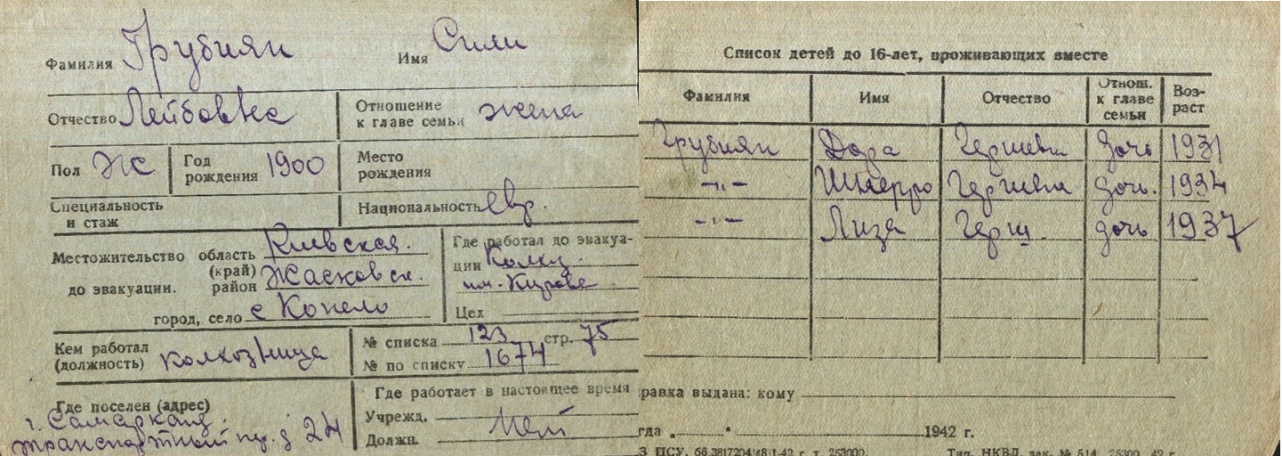 Фамилия Грубиян Имя Сили
Отчество Лейбовна Отношение к главе семьи жена
Пол Ж Год рождения 1900 Место рождения
Специальность и стаж Национальность евр.
Местожительство до эвакуации. область (край) Киевская.
район Жасковск.
город, село с Конело
Где работал до эвакуации Колхз
им. Кирова
Цех
Кем работал (должность) колхозница
№ списка 123 стр. 75
№ по списку 1674
Где поселен (адрес)
г. Самарканд
транспортный пр. д 24
Где работает в настоящее время
Учрежд.
Должн. Нет
Список детей до 16-лет, проживающих вместе
Фамилия Имя Отчество Отнош. к главе семьи Возраст
Грубиян Дора Гершевна дочь 1931
-"- Гершевна дочь. 1934
-"- Лиза Герш. дочь 1937
равка выдана: кому
гда „ " 1942 г.
З ПСУ. Тип. НКВД, зак. № 514 25300 42 г.